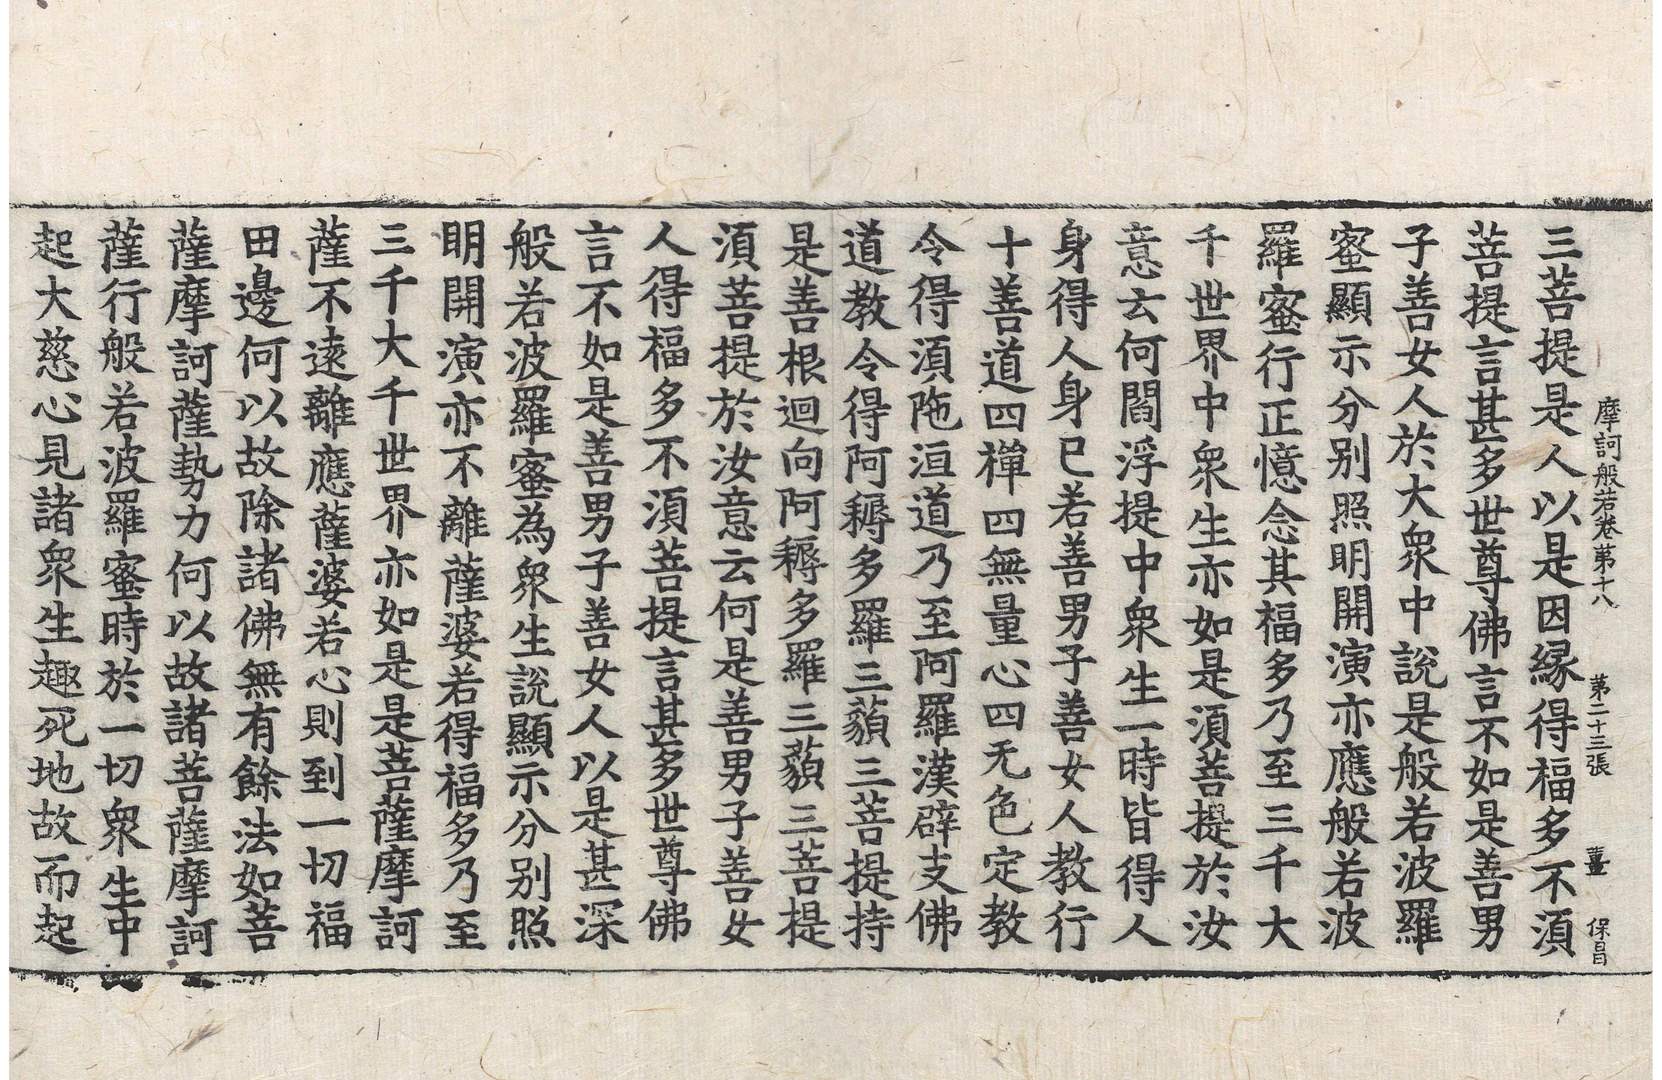 摩訶般若卷第十八 第二十三張 薑 保昌
三菩提是人以是因緣得福多不湏
菩提言甚多世尊佛言不如是善男
子善女人於大衆中說是般若波羅
蜜顯示分別照明開演亦應般若波
羅蜜行正憶念其福多乃至三千大
千世界中衆生亦如是湏菩提於汝
意云何閻浮提中衆生一時皆得人
身得人身已若善男子善女人教行
十善道四禪四無量心四无色定教
令得湏陁洹道乃至阿羅漢辟支佛
道教令得阿耨多羅三藐三菩提持
是善根迴向阿耨多羅三藐三菩提
湏菩提於汝意云何是善男子善女
人得福多不湏菩提言甚多世尊佛
言不如是善男子善女人以是甚深
般若波羅蜜為衆生說顯示分別照
明開演亦不離薩婆若得福多乃至
三千大千世界亦如是是菩薩摩訶
薩不遠離應薩婆若心則到一切福
田邊何以故除諸佛無有餘法如菩
薩摩訶薩勢力何以故諸菩薩摩訶
薩行般若波羅蜜時於一切衆生中
起大慈心見諸衆生趣死地故而起